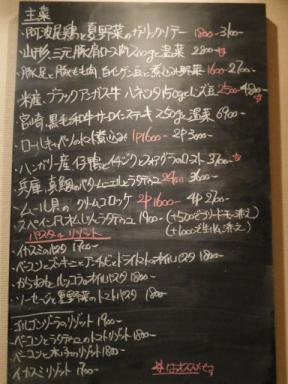 主菜
・阿波尾鶏と夏野菜のガーリックソテー 1800- 3100-
・山形 三元豚肩ロース肉 250gと温菜 2800-
・豚足と豚もも肉 白インゲン豆と煮込み野菜 1600- 2700-
・米産 ブラックアンガス牛 ハネシタ 150gとレンズ豆 2500- 4800-
・宮崎 黒毛和牛サーロインステーキ 250gと温菜 6900-
・ロールキャベツのトマト煮込み 1P1600- 2P3000-
・ハンガリー産 仔鴨とイチジクとフォアグラのロースト 3700-
・兵庫 真鯛のムニエルとラタトゥユ 2400 3600-
・ムール貝のクリームコロッケ 2P1600- 4P2700-
・スペイン風オムレツとラタトゥユ 1900-
(+1000で生ハム添え)
パスタ&リゾット
・イカスミのパスタ 1700-
・ベーコンとズッキーニとアンチョビとドライトマトのオイルパスタ 1800-
・からすみとルッコラのオイルパスタ 1800-
・ソーセージと夏野菜のトマトパスタ 1800-
ゴルゴンゾーラのリゾット 1900-
・ベーコンとラタトゥユのトマトリゾット 1800-
・ベーコンとキノコのリゾット 1800-
・イカスミリゾット 1700-
☆はオススメです